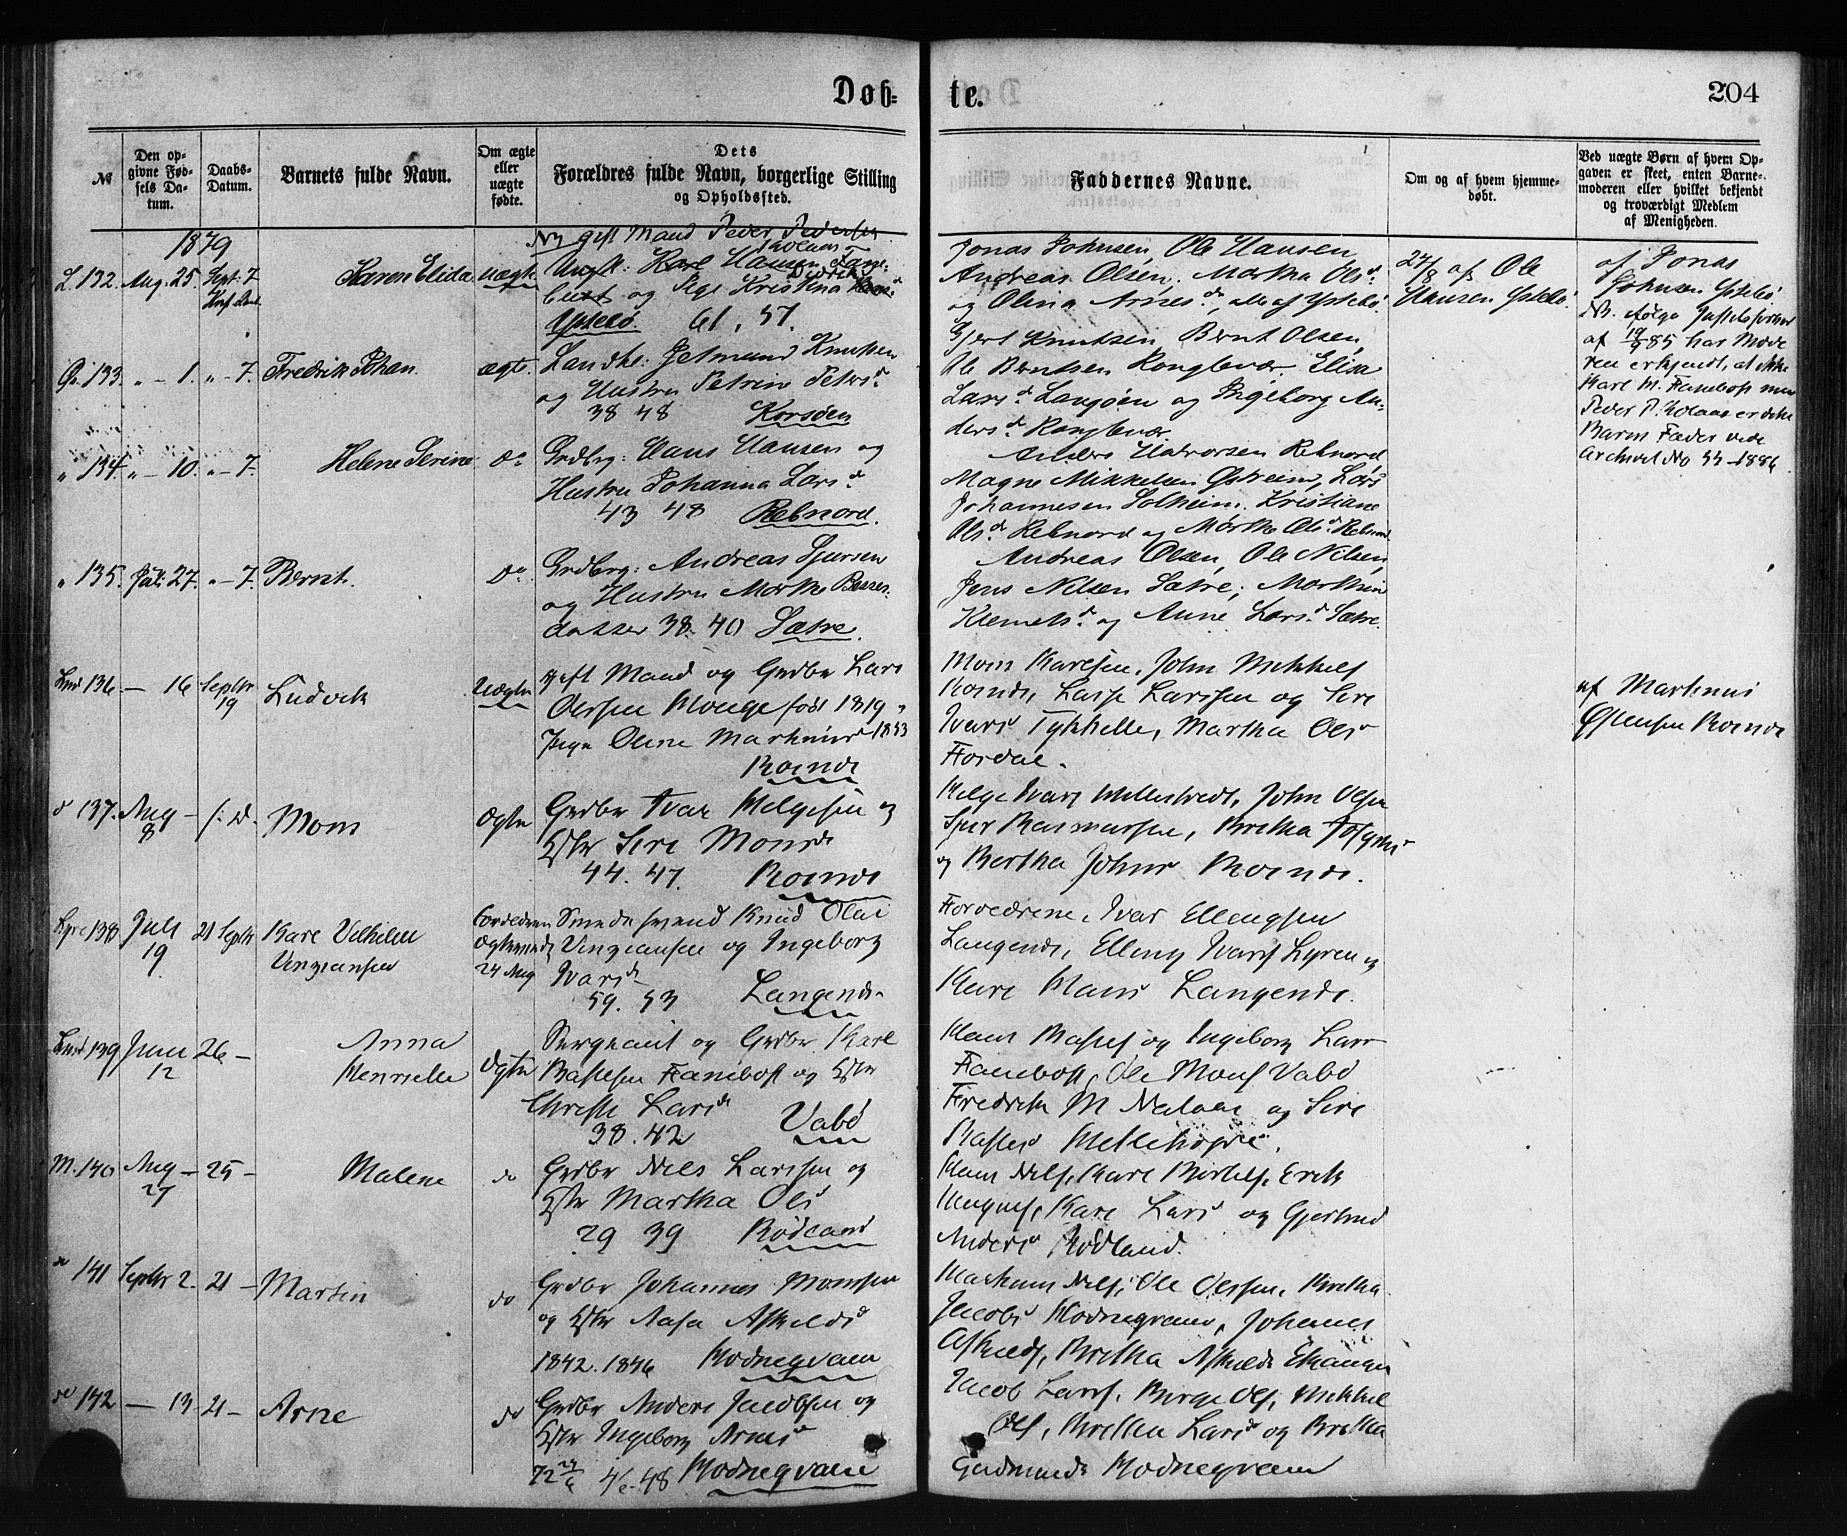 Døb=
te.
204
№
Den op-
givne Fød-
sels Da-
tum.
Daabs-
Datum.
Barnets fulde Navn.
Om ægte
eller
uægte
fødte.
Dets
Forældres fulde Navn, borgerlige Stilling
og Opholdssted.
Faddernes Navne.
Om og af hvem hjemme-
døbt.
Ved uægte Børn af hvem Op-
gaven er skeet, enten Barne-
moderen eller hvilket bekjendt
og troværdigt Medlem
af Menigheden.
1879
L. 132. Aug. 25. Sept. 7. Karen Elida uægte
gift Mand Peder Pedersen
Ungk: Karl Hansen Fane-
og Pige Kristina
Ystebø. 61. 57.
Jonas Johnsen, Ole Hansen
Andreas Olsen, Martha Olsd.
og Olina Arnesd., alle af Ystebø.
27/8 af Ole
Hansen Ystebø.
af Jonas
Johnsen Ystebø.
NB. Ifølge
af 19/9 85 har Mode
ren erkjendt, at ikke
Karl M. Fanebost men
Peder P. Kolaas er dette
Barns Fader vide
Archivet No 33-1886.
133. " - 1. " - 7. Fredrik Johan. ægte.
Landbr: Jetmund Knutsen
og Hustru Petrine Petersd.
38 48 Korsøen
Gjert Knutsen, Bernt Olsen,
Ole Berntsen Ronglevær, Elisa
Larsd. Langøen og Ingeborg An-
dersd. Ronglevær.
" 134. " - 10. " - 7. Helene Serine do
Grdbrg: Hans Hansen og
Hustru Johanna Larsd.
43 48 Rebnord.
Anders Halvorsen Rebnord
Magne Mikkelsen Østreim, Lars
Johannesen Solheim, Kristiane
Olsd. Rebnord og Marthe Olsd. Rebnord
" 135. Juli 27. " - 7. Bernt. do
Grdbrg: Andreas Sjursen
og Hustru Marthe
datter 38. 40 Sætre.
Andreas Olsen, Ole Nilsen,
Jens Nilsen Sætre, Marthin
Klemetsd. og Anne Larsd. Sætre.
136 — 16 Septbr 19 Ludvik Uægte
gift Mand og Grdbr Lars
Olssen Monge født 1819 "
Pige Oline Martinus 1853
Romde
Mons Karlsen, John Mikkels
Romde, Lasse Larssen og Siri
Ivars Tykhelle, Martha Ols
Fordal.
af Martinus
Østensen Romde
do 137. Aug 8 — s. d. Mons Ægte
Grdbr Ivar Helgesen og
Hstr Siri Monsd
44. 47. Romde
Helge Ivars John Olsen
Sjur Rasmussen, Britha
og Bertha Johns Romde.
138 Juli 19 21 Septbr Karl Vilhelm
Forældrene
Ægteviede
24 Aug
Smedesvend Knud Olai
og Ingeborg
Ivarsd
59. 53 Langende
Forældrene, Ivar Ellingsen
Langende, Elling Ivars Lyren og
Kari Mans Langende.
139 Juni 12 26 — Anna
Henrielle
Ægte
Sergeant og Grdbr Karl
Fanebost og Hstr
Christi Larsd
38. 42 Vabø
Hans og Ingeborg Lars
Fanebost, Ole Mons Vabø
Fredrik M og Siri
M. 140 Aug — 27 25 — Malene do
Grdbr Nils Larssen og
Hstr Martha Ols
29 39 Rødland
Hans Nils, Karl Erik
Kari Lars og Gjertrud
Anders Rødland.
do 141 Septbr 2. 21 — Martin do
Grdbr Johannes Monssen
og Hstr Aasa Askilds
1842. 1846 Hodnegvam
Markus Nils, Ole Olssen, Britha
Jacobs Hodnegvam, Johannes
Askilds, Britha Askilds
do 142 — 13 21 — Arne do
Grdbr Anders Jacobsen og
Hstr Ingeborg Arnes
46-48 Hodnegvam
Jacob Lars, Børge Ols, Mikkel
Ols, Brithe Larsd og Britha
Gudmunds Hodnegvam